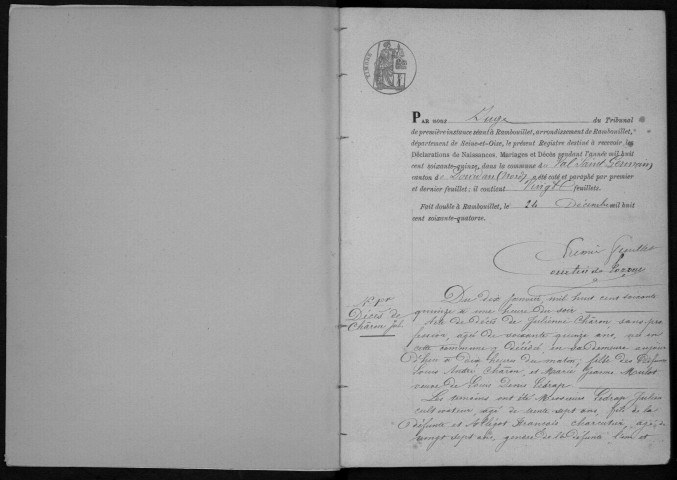 TIMBRE
PAR NOUS Juge du Tribunal
de première instance séant à Rambouillet, arrondissement de Rambouillet,
département de Seine-et-Oise, le présent Registre destiné à recevoir les
Déclarations de Naissances, Mariages et Décès pendant l'année mil huit
cent soixante-quinze, dans la commune d Val Saint Germain
canton d Dourdan (Nord), a été coté et paraphé par premier
et dernier feuillet: il contient Vingt feuillets.
Fait double à Rambouillet, le 24 Décembre mil huit
cent soixante-quatorze.
Premier feuillet
N° 1er
Décès de
Charon Jul.
Du dix Janvier mil huit cent soixante
quinze à une heure du soir
Acte de décès de Julienne Charon sans pro
fession, agée de soixante quinze ans, née en
cette commune y décédée en sa demeure aujour
d'hui à dix heures du matin, fille des défunts
Louis André Charon, et Marie Jeanne Moulot
veuve de Louis Denis Lédrap
Les témoins ont été Messieurs Lédrap Julien
cultivateur agé de trente sept ans, fils de la
défunte et François charcutier, agé de
vingt sept ans, gendre de la défunte l'un et